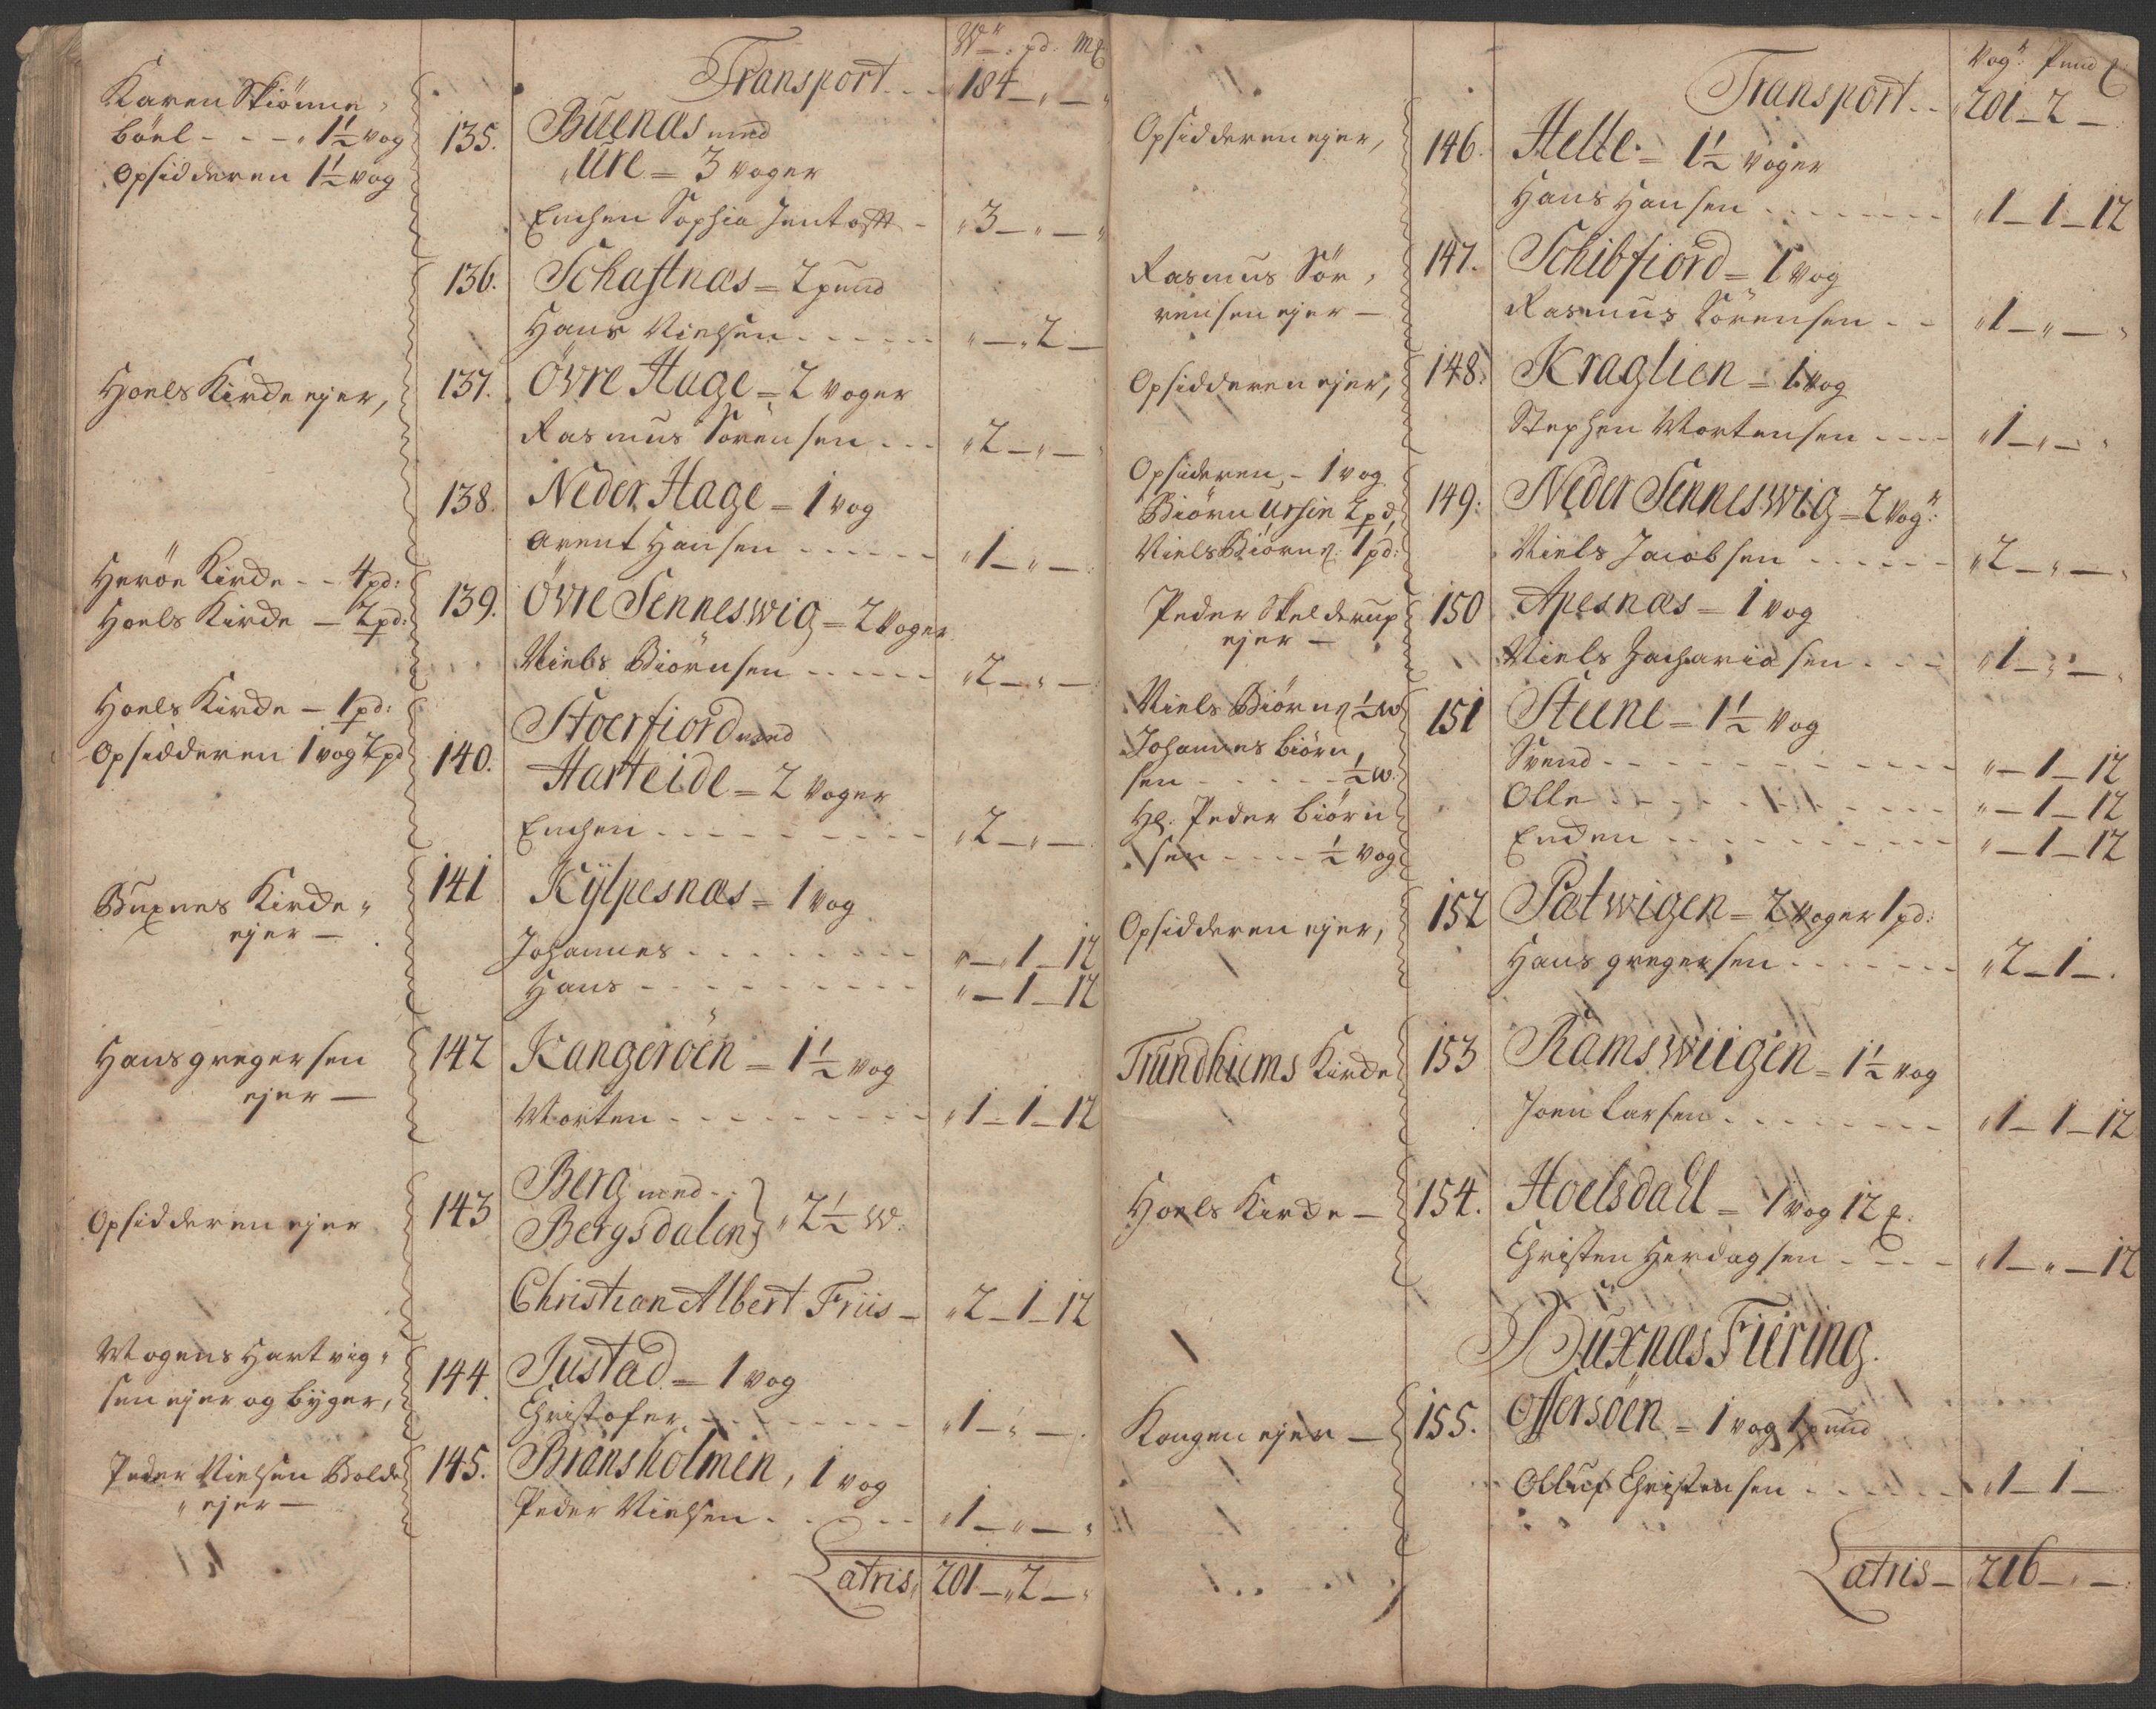 Wr. pd. mk
Transport - - 184 - " - "
Karen Skiønne,
böel - - - " 1½ vog
Opsidderen 1½ vog
135. Buenæs med
Ure = 3 voger
Enchen Sophia Jentofft - " 3 - " - "
136. Schaftnæs = 2 pund
Hans Nielsen - - - - - " - " 2 -
Hoels Kirche ejer,
137. Øvre Hage = 2 voger
Rasmus Sörensen - - - " 2 - " -
138. Neder Hage = 1 vog
Arent Hansen - - - - - " 1 - " -
Heröe Kirche - - 4 pd:
Hoels Kirche - 2 pd:
139. Øvre Senneswig = 2 voger
Niels Biörnsen - - - - - " 2 - " -
Hoels Kirche - 1 pd:
Opsidderen 1 vog 2 pd
140. Stoerfiord med
Harteide = 2 voger
Enchen - - - - - - - - " 2 - " -
Buxnes Kirche "
ejer -
141 Kÿlpesnæs = 1 vog
Johannes - - - - - - - " - " 1 - 12
Hans - - - - - - - - - " - 1 - 12
Hans gregersen
ejer -
142 Kangeröen = 1½ vog
Morten - - - - - - - - " 1 - 1 - 12
Opsidderen ejer
143 Berg med - -
Bergsdalen } " 2½ W.
Christian Albert Friis - " 2 - 1 - 12
Mogens Hartvig,
sen ejer og býger,
144. Justad = 1 vog
Christofer - - - - - - - " 1 - " -
Peder Nielsen Bolde
" ejer -
145. Bransholmen, 1 vog
Peder Nielsen - - - - - " 1 - " - "
Latris, 201 - " 2 - "
Vogr: Pund
Transport - - 201 - 2 -
Opsidderen ejer,
146. Helle = 1½ voger
Hans Hansen - - - - - - " 1 - 1 - 12
Rasmus Sör,
rensen ejer -
147. Schibfiord = 1 vog
Rasmus Sörensen - - " 1 - " - "
Opsidderen ejer,
148. Kraglien = 1 vog
Stephen Mortensen - - - - " 1 - " - "
Opsideren, - 1 vog
Biörn Ursin 2 pd,
Niels Biörns: 1 pd:
149: Neder Senneswig = 2 Vogr:
Niels Jacobsen - - - - - - " 2 - " - "
Peder Skelderup
ejer -
150 Apesnæs = 1 vog
Niels Zachariasen - - - " 1 - " - "
Niels Biörns ½ W
Johannes Biörn,
sen - - - - - - ½ W.
Hl. Peder Biörn
sen - - - - ½ vog
151 Steene = 1½ vog
Svend - - - - - - - - - " - 1 - 12
Olle - - - - - - - - - " - 1 - 12
Enchen - - - - - - - - " - 1 - 12
Opsidderen ejer,
152 Pætwigen = 2 voger 1 pd:
Hans gregersen - - - - - - " 2 - 1 -
Trundhiems Kirche
153 Ramswiigen = 1½ vog
Joen Larsen - - - - - - - " 1 - 1 - 12
Hoels Kirche -
154. Hoelsdall = 1 vog 12
Christen Herdagsen - - - - " 1 - " - 12
Buxnæs Fiering.
Kongen ejer -
155. Offersöen = 1 vog 1 pund
Olluf Christensen - - - - - " 1 - 1 -
Latris - 216 - " -